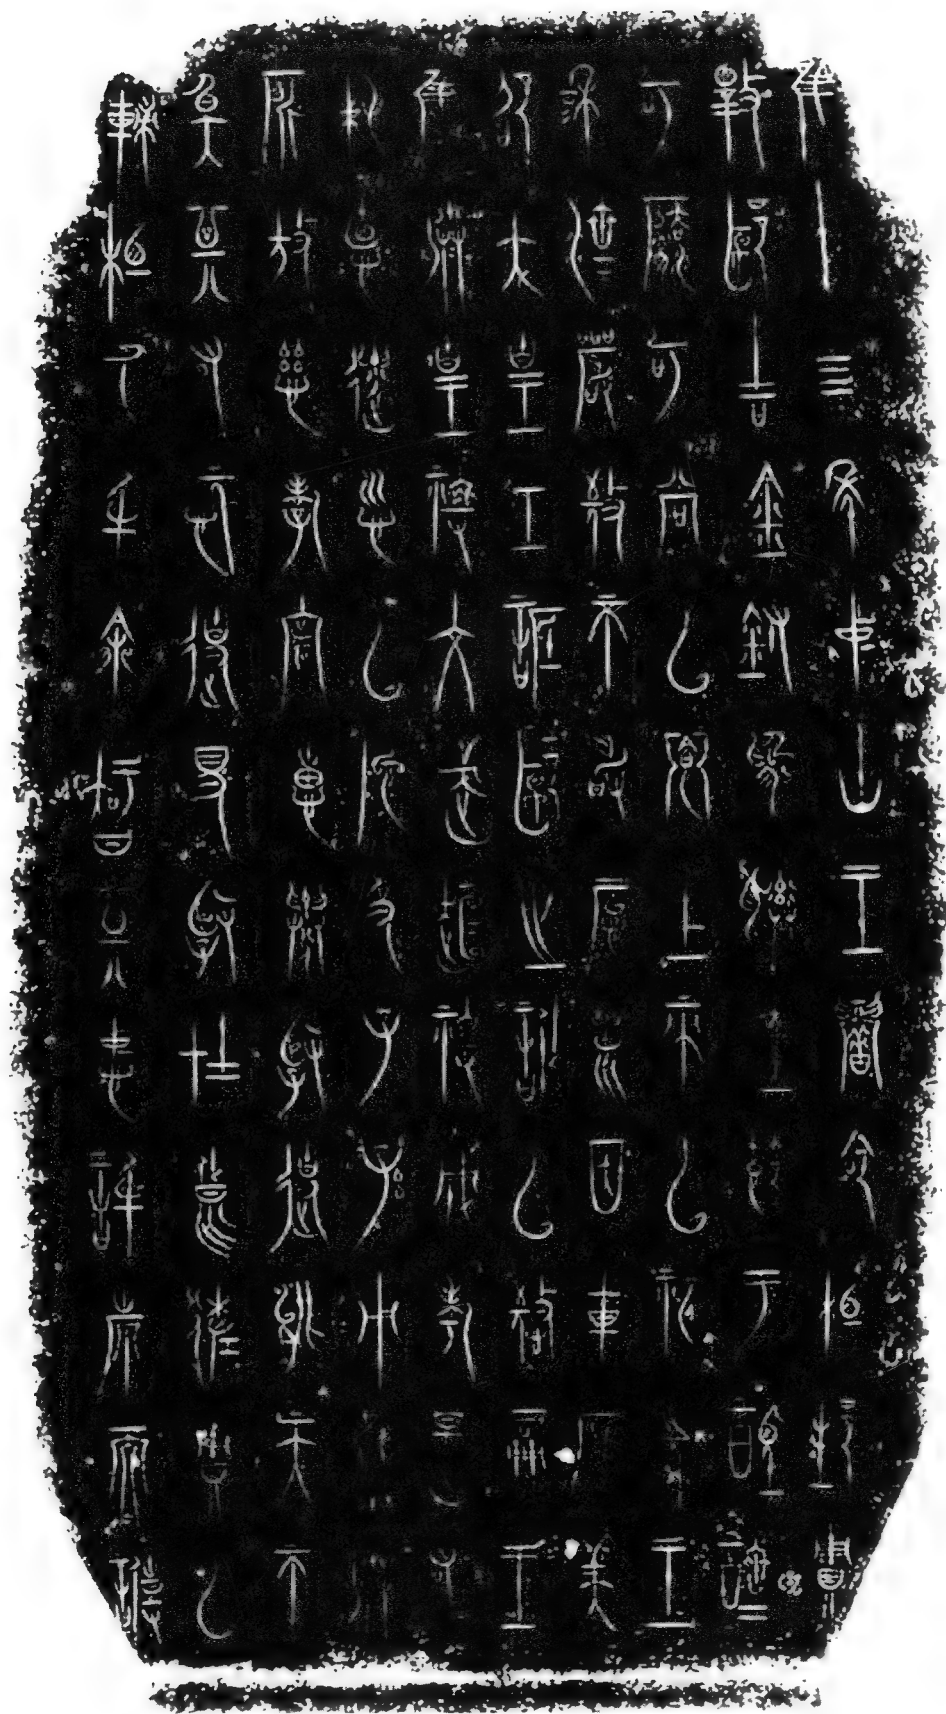 隹十四年中山王嚳命相邦賙
擇郾吉金鑄為彝壺節于禋齊
可法可尚以饗上帝以祀先王
穆濟嚴敬不敢怠荒因載所美
卲大皇工詆郾之訛以憼嗣王
隹朕皇祖文武桓祖成考寔有
純德遺訓以施及子孫用隹朕
所放慈孝宣惠舉賢使能天不
斁其有愿使得賢在良佐賙以
輔相厥身余知其忠信也而專